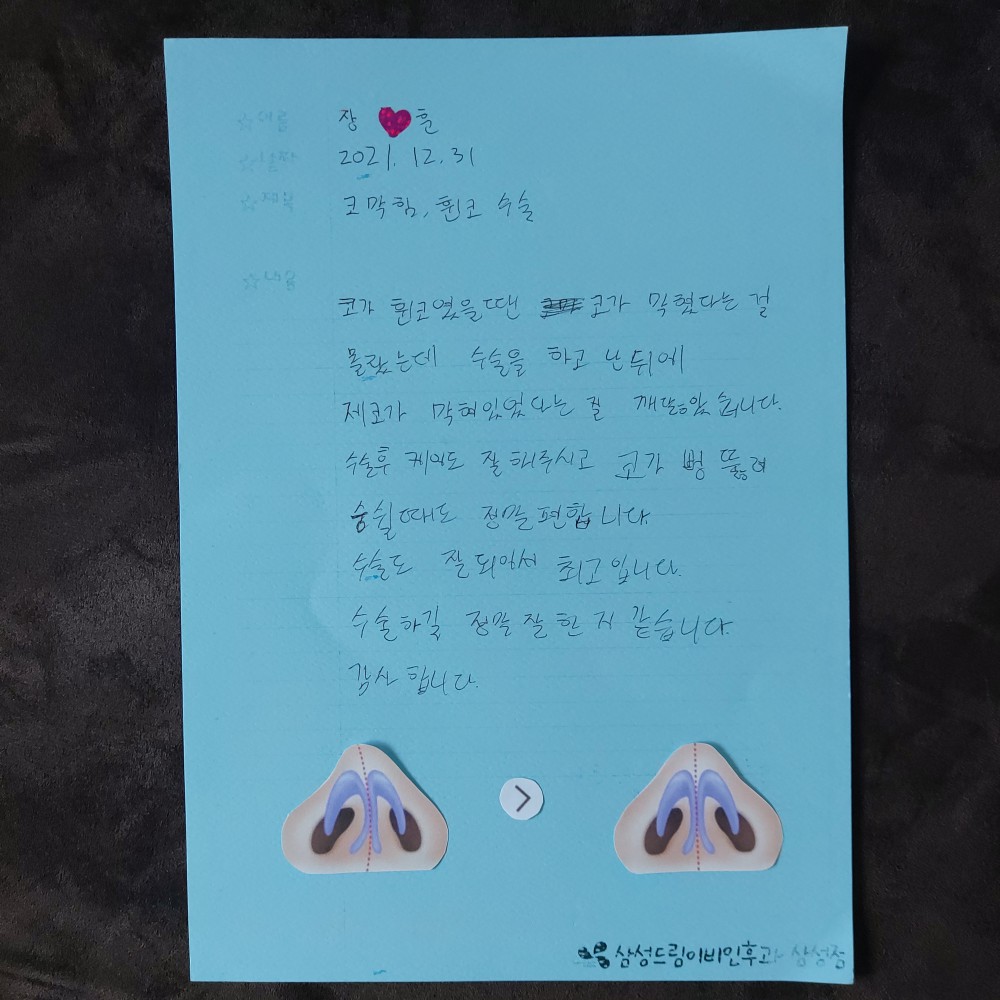 장 훈
2021. 12. 31
코막힘, 휜코 수술
코가 휜코였을땐 코가 막혔다는 걸
몰랐는데 수술을 하고 난 뒤에
제코가 막혀있었다는 걸 깨달았습니다.
수술후 케어도 잘 해주시고 코가 뻥 뚫려
숨쉴때도 정말 편합니다.
수술도 잘 되어서 최고입니다.
수술하길 정말 잘 한 거 같습니다.
감사합니다.
삼성드림이비인후과 삼성점